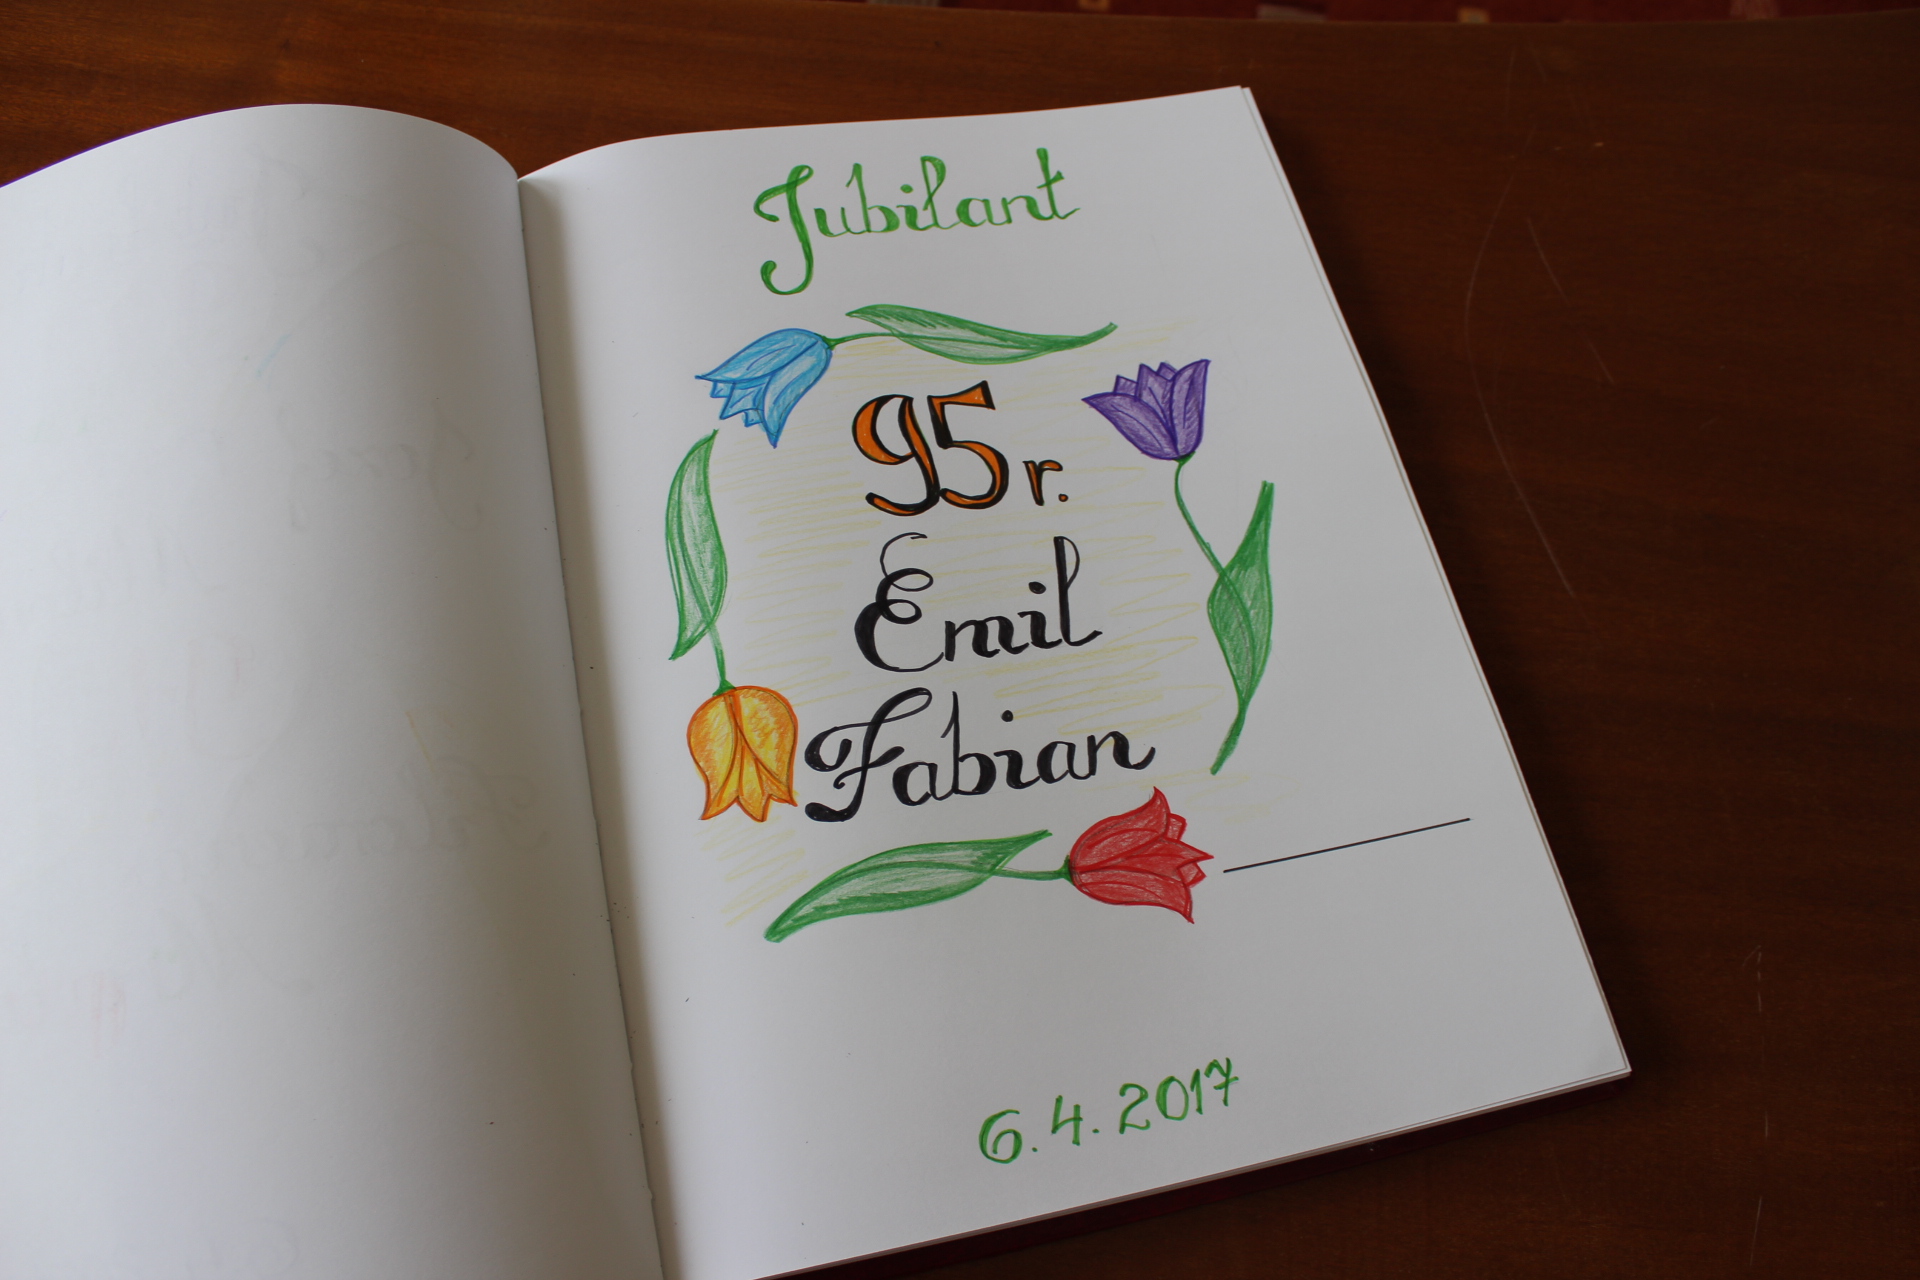 Jubilant
95 r.
Emil
Fabian
6.4.2017